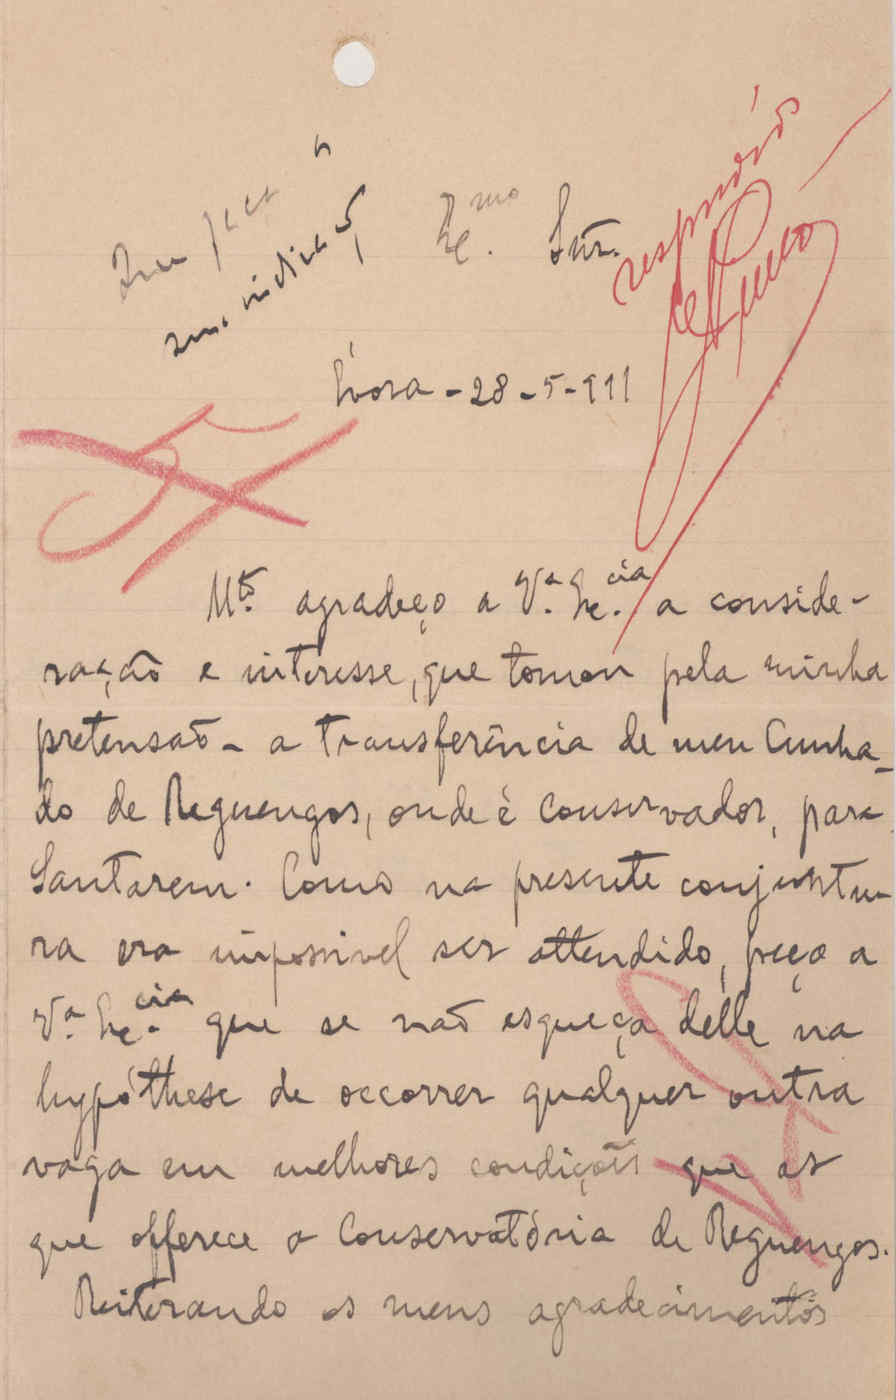 Exmo. Snr.
respondido
Évora - 28-5-911
Mto. agradeço a Va. Excia. a conside-
ração e interesse, que tomou pela minha
pretensão - a transferência de meu Cunha-
do de Reguengos, onde é Conservador, para
Santarem. Como na presente conjunctu-
ra era impossivel ser attendido, peço a
Va. Excia. que se não esqueça delle na
hypóthese de occorrer qualquer outra
vaga em melhores condições que as
que offerece a Conservatória de Reguengos.
Reiterando os meus agradecimentos